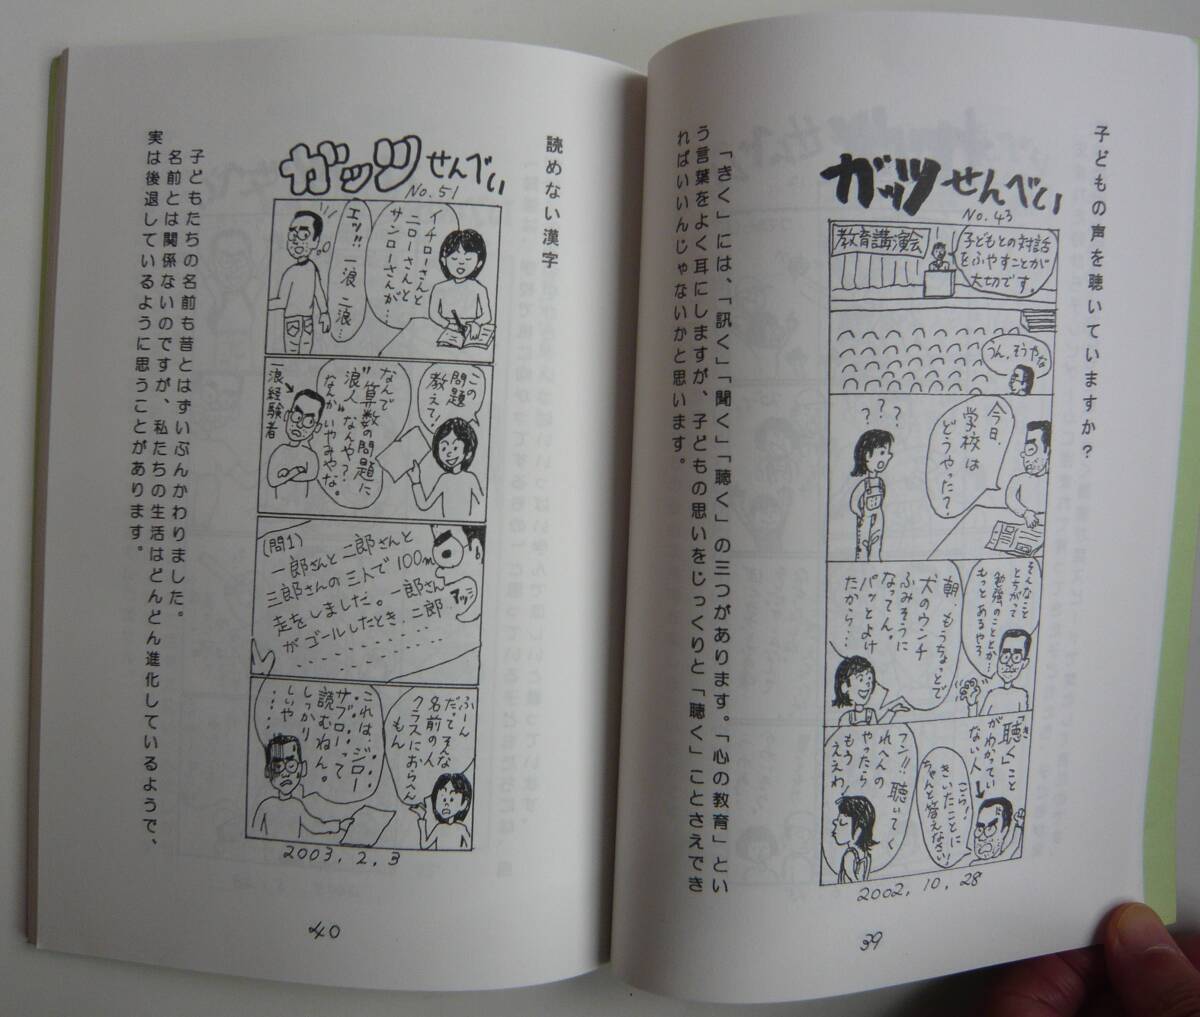 子どもの声を聴いていますか？
ガッツせんべい
No.43
教育講演会
子どもとの対話
をふやすことが
大切です。
うん、そうやな
今日、
学校は
どうやった？
？？？
そんなこと
とちがって
勉強のこととか…
もっとあるやろ
朝、もうちょっとで
犬のウンチ
ふみそうに
なってん。
パッとよけ
たから…
「聴く」こと
きく
がわかってい
ない人
こら!
きいたことに
ちゃんと答えなさい!
フン!!聴いてく
れへんの
やったら
もう
ええわ!
2002.10.28
「きく」には、「訊く」「聞く」「聴く」の三つがあります。「心の教育」とい
う言葉をよく耳にしますが、子どもの思いをじっくりと「聴く」ことさえでき
ればいいんじゃないかと思います。
39
読めない漢字
ガッツせんべい
No.51
イチローさんと
ニローさんと
サンローさんが…
エッ!!一浪 二浪…
この
問題
教えて!
なんで
算数の問題に
"浪人"なんや？
なんかいやみやな。
一浪経験者
(問1)
一郎さんと二郎さんと
三郎さんの三人で100m
走をしました。一郎さん
がゴールしたとき、二郎
アッ!
ふーん
だってそんな
名前の人
クラスにおらへん
もん
これは、ジロー
サブローって
読むねん。
しっかり
しいや
……
2003.2.3
子どもたちの名前も昔とはずいぶんかわりました。
名前とは関係ないのですが、私たちの生活はどんどん進化しているようで、
実は後退しているように思うことがあります。
40